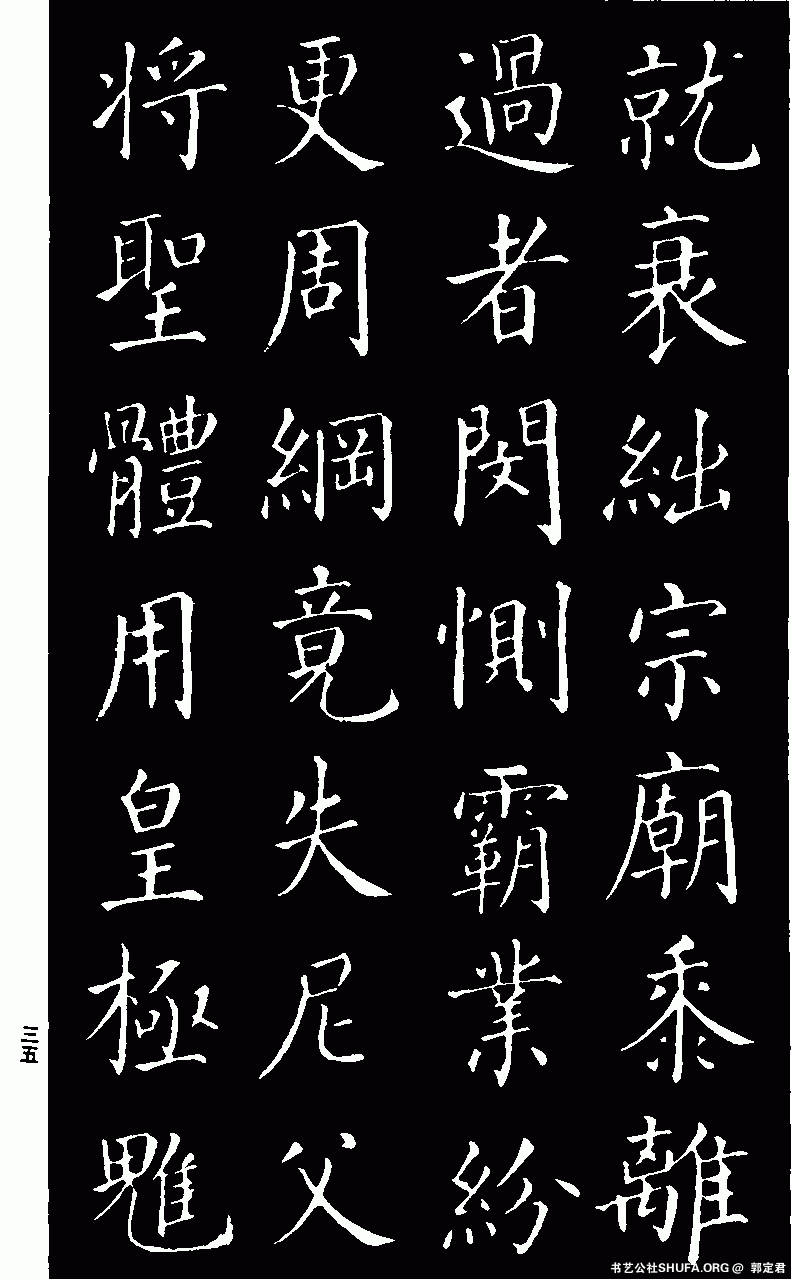 就衰絀宗廟黍離
過者閔惻霸業紛
更周綱竟失尼父
将聖體用皇極魋
三五
书艺公社SHUFA.ORG @ 郭定君